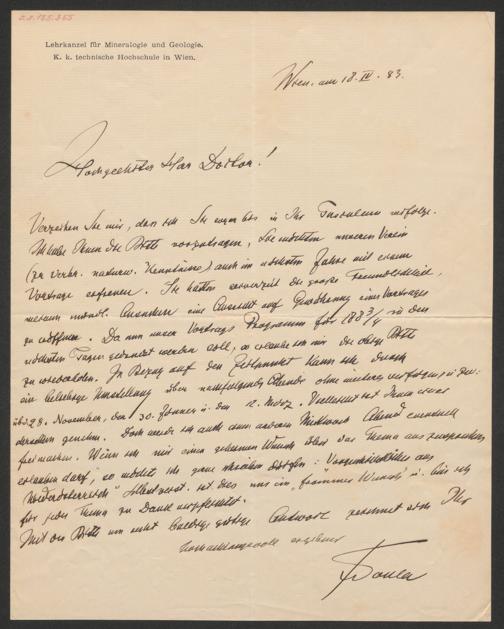 Lehrkanzel für Mineralogie und Geologie.
K. k. technische Hochschule in Wien.
Wien, am 18. IX. 83.
Hochgeehrter Herr Doctor!
Verzeihen Sie mir, dass ich Sie sogar bis in Ihr Tusculum verfolge.
Ich habe Ihnen die Bitte vorzutragen, Sie möchten unseren Verein
(zu Verbr. naturw. Kenntnisse) auch im nächsten Jahre mit einem
Vortrage erfreuen. Sie hatten seinerzeit die große Freundlichkeit,
meinem Ansuchen eine Aussicht auf Gewährung eines Vortrages
zu eröffnen. Da nun unser Vortrags Programm für 1883/4 in den
nächsten Tagen gedruckt werden soll, so erlaube ich mir die obige Bitte
zu wiederholen. In Bezug auf den Zeitpunkt kann ich durch
eine beliebige Umstellung über nachfolgende Abende ohne weiteres verfügen, u. zw.:
28. November, den 30. Jänner u. den 12. März. Vielleicht ist Ihnen einer
derselben genehm. Doch werde ich auch einen anderen Mittwoch Abend eventuell
frei machen. Wenn ich mir einen geheimen Wunsch über das Thema auszusprechen
erlauben darf, so möchte ich ganz
Niederösterreich" ist dies nur ein "frommer Wunsch" u. bin ich
für jedes Thema zu Dank verpflichtet.
Mit der Bitte um recht baldige gütige Antwort zeichnet sich Ihr
hochachtungsvoll ergebener
FToula